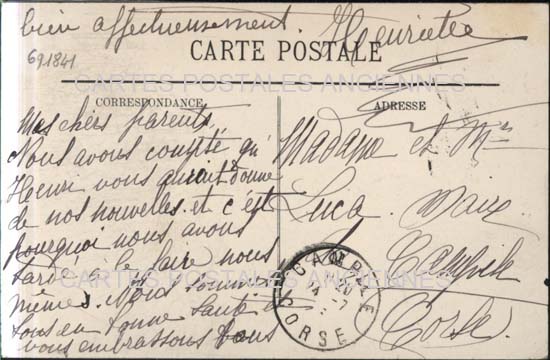 bien affectueusement. Henriette
CARTE POSTALE
691841
CARTES POSTALES ANCIENNES
CORRESPONDANCE
ADRESSE
Mes chers parents,
Nous avons compté qu'
Henri vous aurait donné
de nos nouvelles et c'est
pourquoi nous avons
tardé à le faire nous
mêmes. Nous sommes
tous en bonne santé et
vous embrassons tous
Madame et Mr
Luca
Corse
CARTES POSTALES ANCIENNES
CORSE